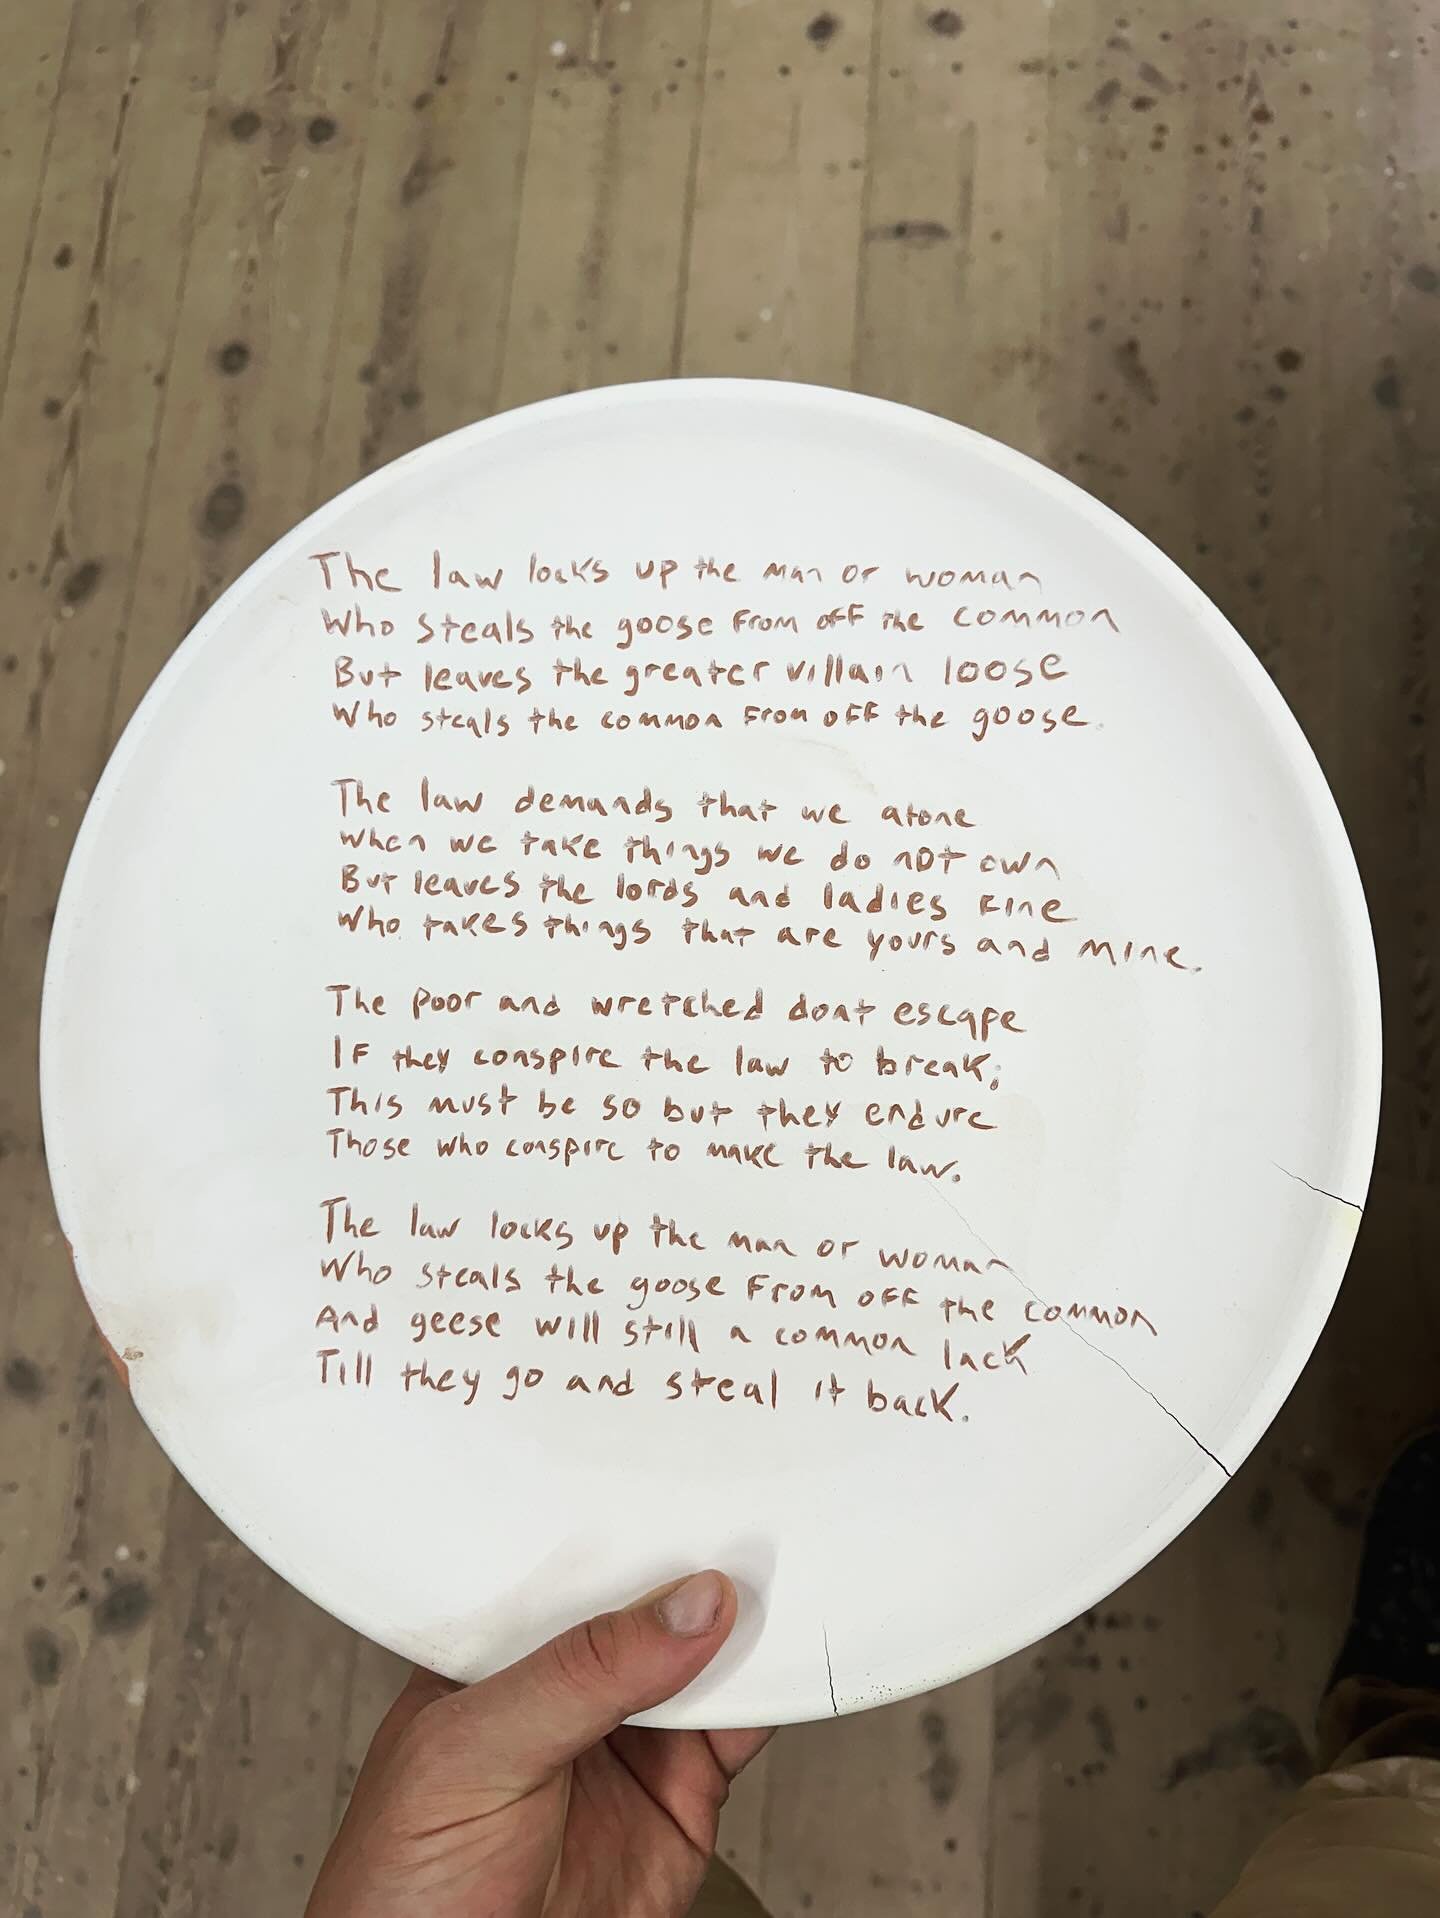 The law locks up the man or woman
Who steals the goose from off the common
But leaves the greater villain loose
Who steals the common from off the goose.
The law demands that we atone
when we take things we do not own
But leaves the lords and ladies fine
Who takes things that are yours and mine.
The poor and wretched dont escape
If they conspire the law to break;
This must be so but they endure
Those who conspire to make the law.
The law locks up the man or woman
Who steals the goose from off the common
And geese will still a common lack
Till they go and steal it back.